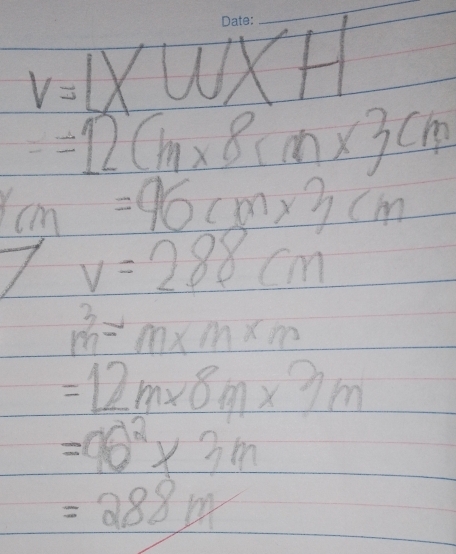 Date:
V = L X W X H
= 12 Cm x 8 cm x 3 cm
cm = 96 cm x 3 cm
V = 288 cm
m³ = m x m x m
= 12m x 8m x 3m
= 96² x 3m
= 288 m